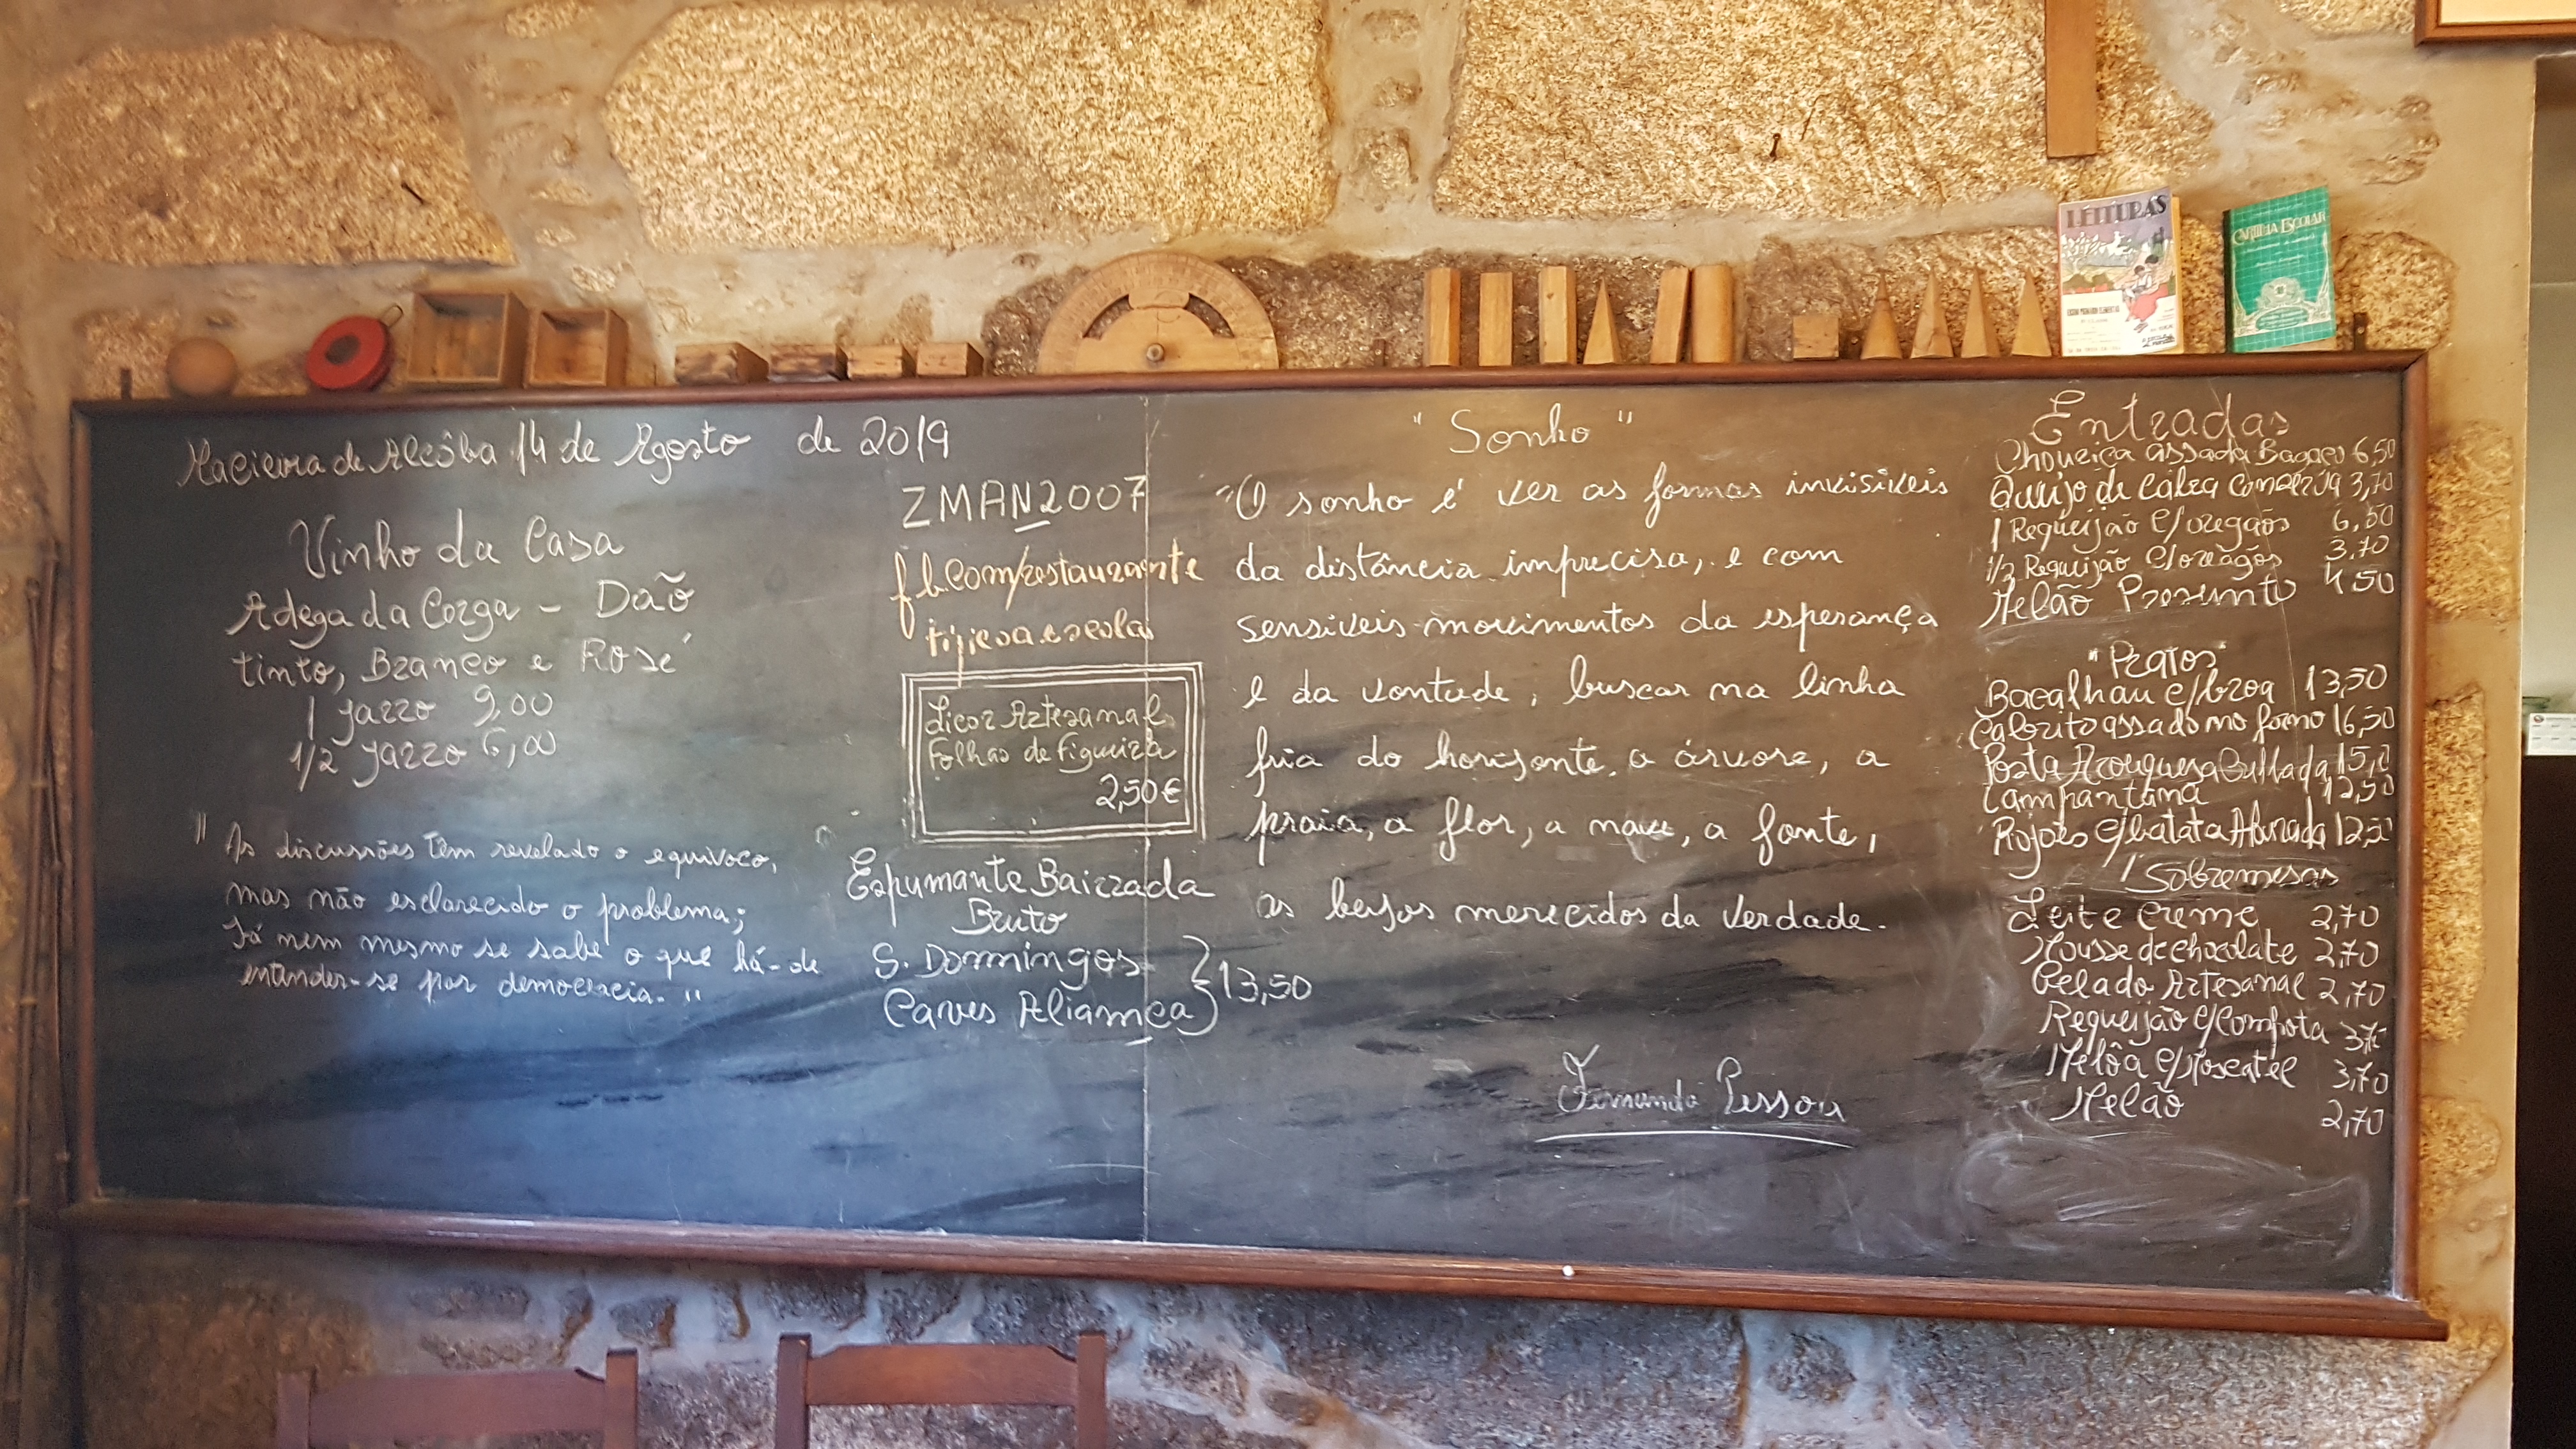 LEITURAS
CARTILHA ESCOLAR
Macieira de Alcôba 14 de Agosto de 2019
Vinho da Casa
Adega da Corga - Dão
tinto, Branco e Rosé
1 Jarro 9,00
1/2 Jarro 6,00
" As discussões têm revelado o equívoco,
mas não esclarecido o problema;
Já nem mesmo se sabe o que há-de
entender-se por democracia. "
ZMAN2007
fb.com/restaurante
tipicoaescola
Licor Artesanal
Folhas de Figueira
2,50€
Espumante Bairrada
Bruto
S. Domingos
Caves Aliança } 13,50
" Sonho "
"O sonho é ver as formas invisíveis
da distância imprecisa, e com
sensíveis movimentos da esperança
e da vontade, buscar na linha
fria do horizonte. a árvore, a
praia, a flor, a nave, a fonte,
os beijos merecidos da Verdade.
Fernando Pessoa
Entradas
Chouriça assada Bagaço 6,50
Queijo de Cabra 3,70
1 Requeijão c/oregãos 6,50
1/2 Requijão c/oregãos 3,70
Melão Presunto 4,50
"Pratos"
Bacalhau c/broa 13,50
Cabrito assado no forno 16,50
Posta Arouquesa 15,0
Lampantana 12,50
Rojões c/batata Alourada 12,50
Sobremesas
Leite Creme 2,70
Mousse de chocolate 2,70
Gelado Artesanal 2,70
Requeijão c/compota
Melôa c/Moscatel 3,70
Melão 2,70